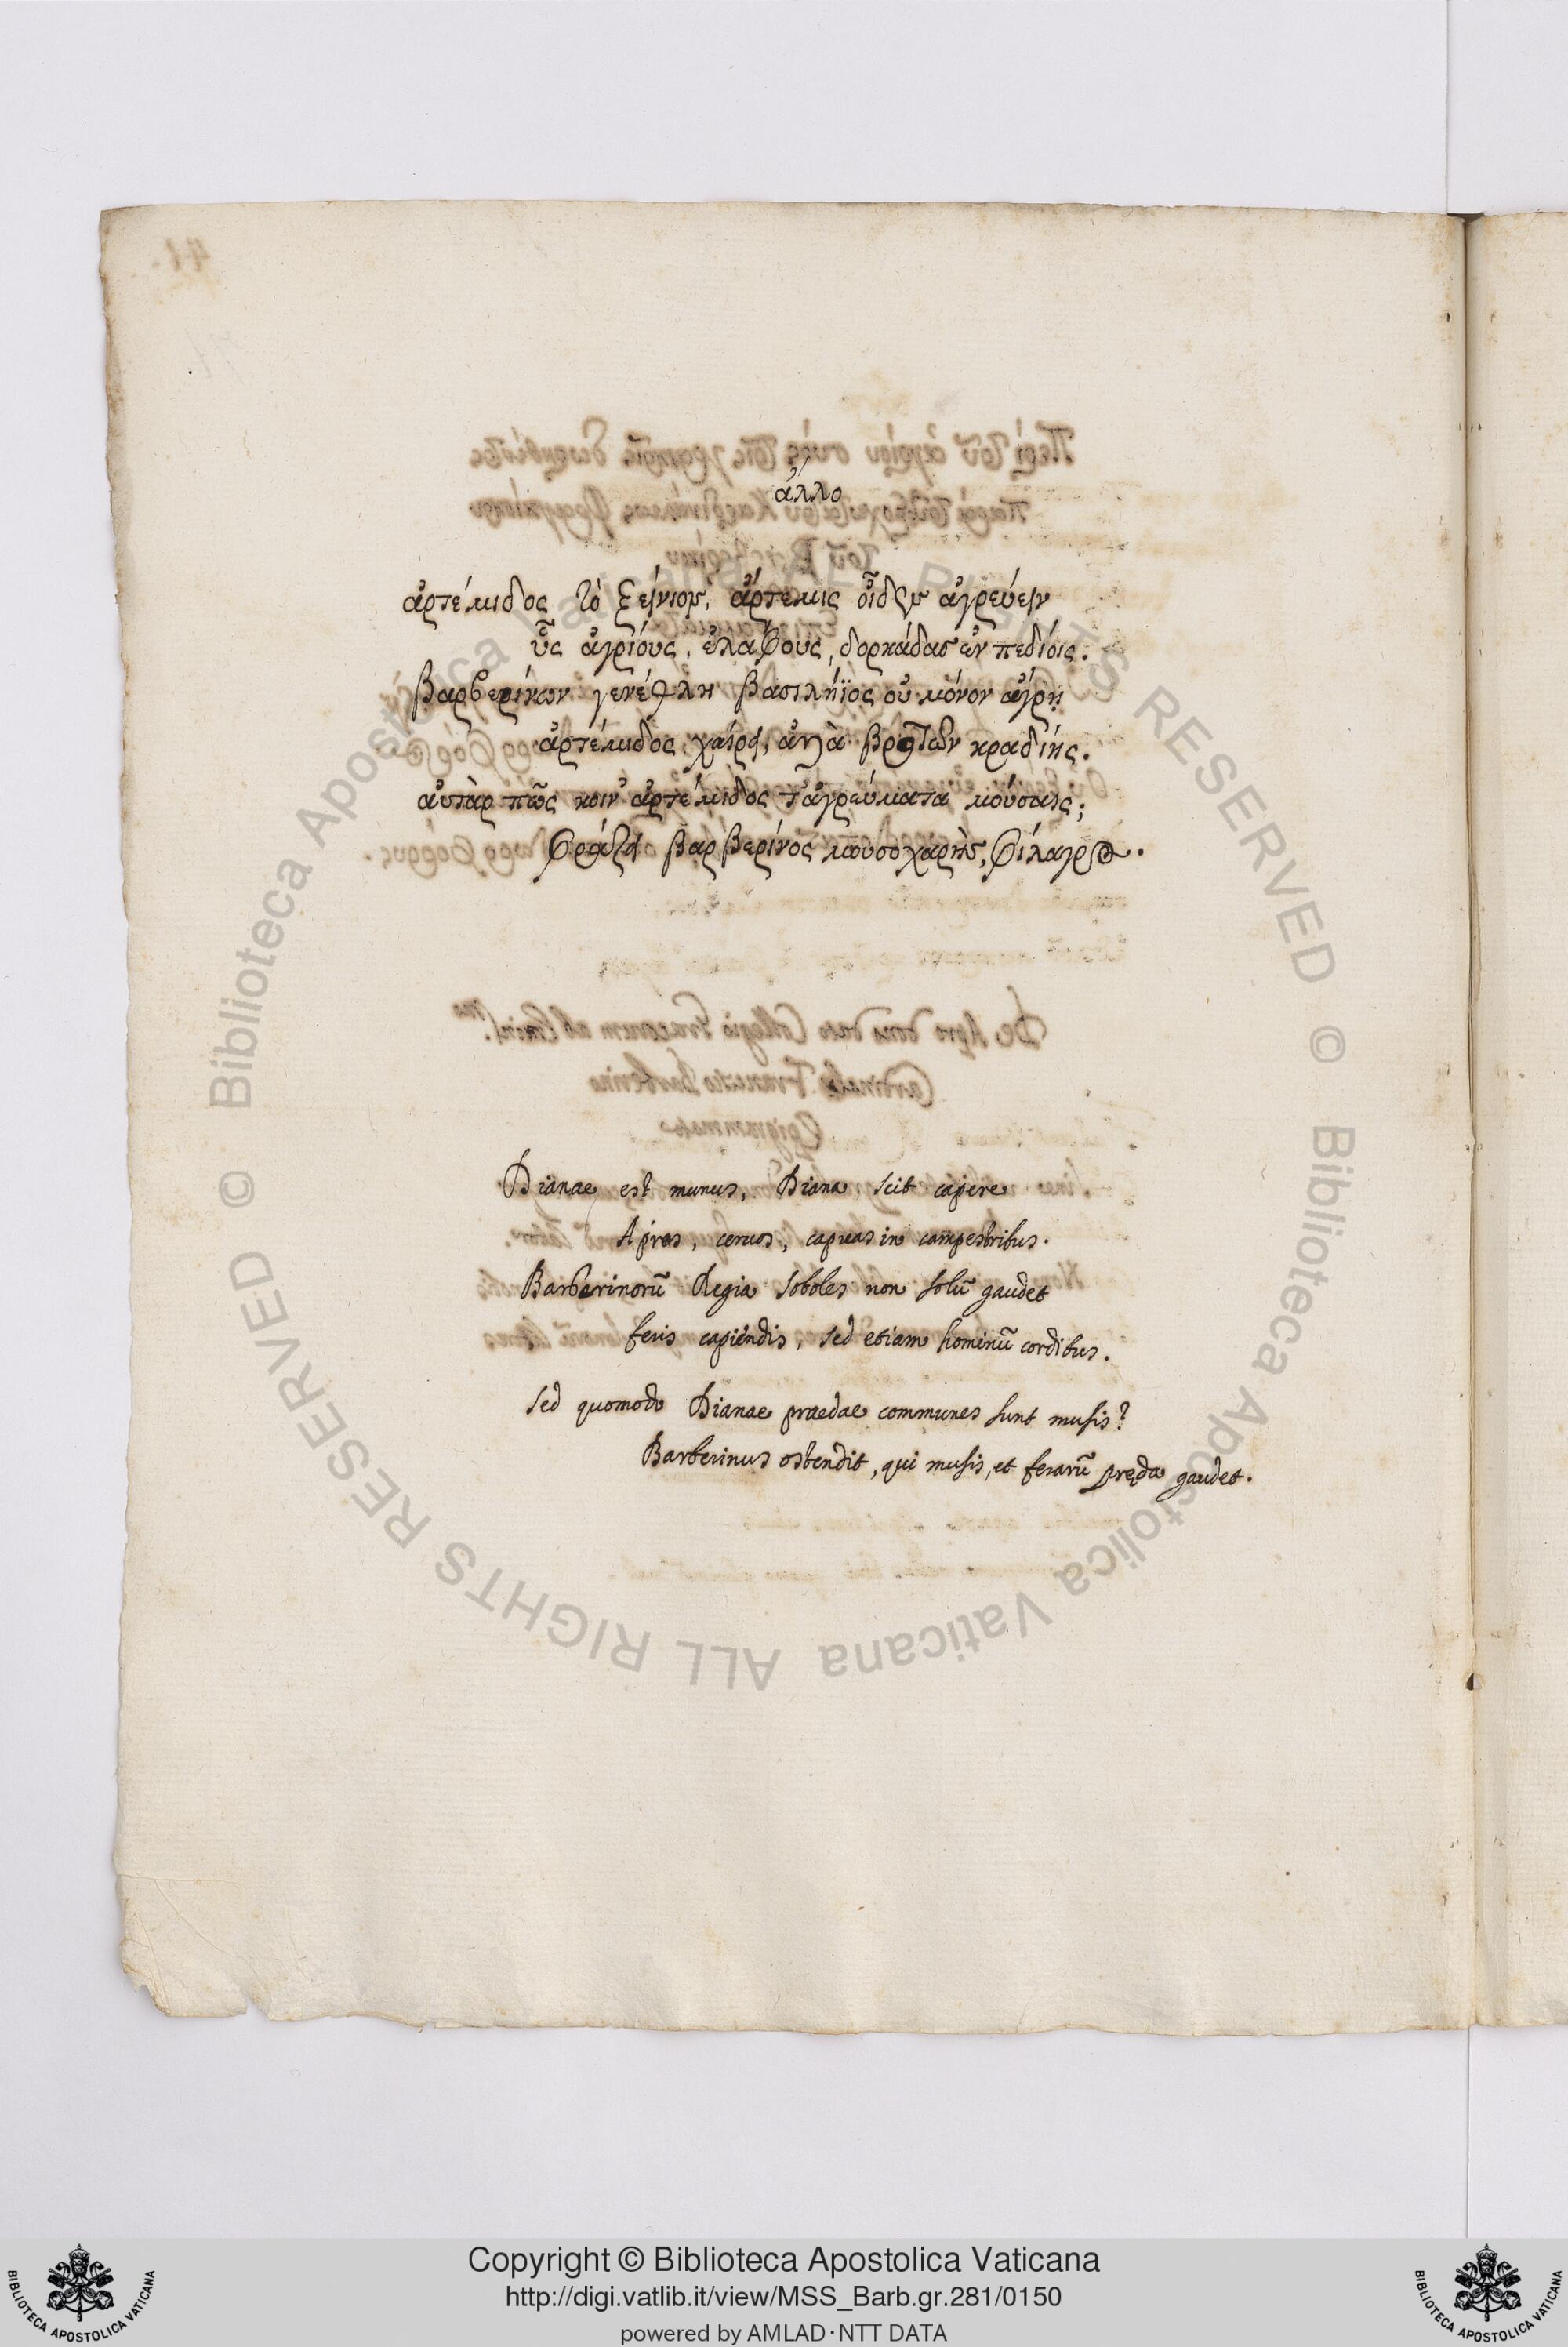 ἄλλο
ἀρτέμιδος τὸ ξείνιον, ἄρτεμις οἶδεν ἀγρεύειν
ὗς ἀγρίους, ἐλάφους, δορκάδας ἐν πεδίοις.
βαρβερίνων γενέθλη βασιλήϊος οὐ μόνον ἄγρῃ
ἀρτέμιδος χαίρει, ἀλλὰ βροτῶν κραδίης.
αὐτὰρ πῶς κοιν' ἀρτέμιδος τ' ἀγρεύματα μούσαις;
φράζει βαρβερίνος μουσοχαρὴς, φίλαγρος.
Dianae est munus, Diana scit capere
Apros, ceruos, capreas in campestribus.
Barberinorũ Regia soboles non solũ gaudet
feris capiendis, sed etiam hominũ cordibus.
sed quomodo Dianae praedae communes sunt musis?
Barberinus ostendit, qui musis, et ferarũ pręda gaudet.
Copyright © Biblioteca Apostolica Vaticana
http://digi.vatlib.it/view/MSS_Barb.gr.281/0150
powered by AMLAD·NTT DATA
© Biblioteca Apostolica Vaticana ALL RIGHTS RESERVED © Biblioteca Apostolica Vaticana ALL RIGHTS RESERVED
BIBLIOTECA APOSTOLICA VATICANA
BIBLIOTECA APOSTOLICA VATICANA